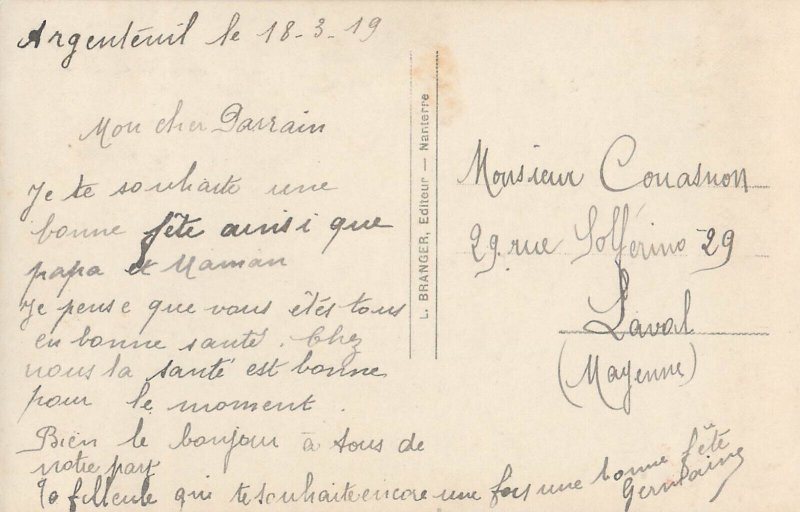 Argenteuil le 18-3-19
Mon cher Parrain
Je te souhaite une
bonne fête ainsi que
papa et Maman
Je pense que vous êtes tous
en bonne santé. Chez
nous la santé est bonne
pour le moment.
Bien le bonjour à tous de
notre part
Ta filleule qui te souhaite encore une fois une bonne fête
Germaine
L. BRANGER, Editeur — Nanterre
Monsieur Couasnon
29 rue Solférino 29
Laval
(Mayenne)